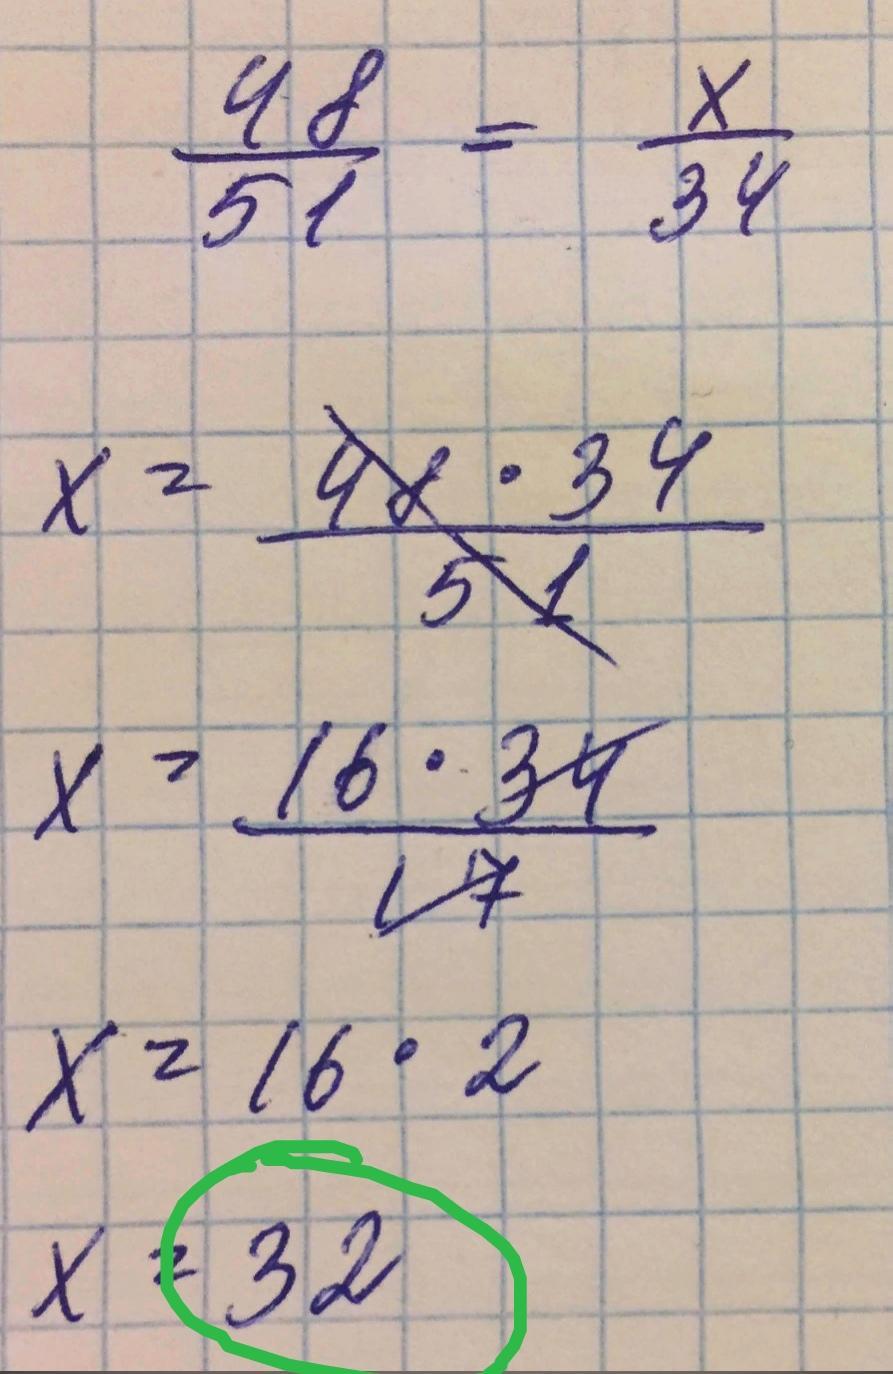 48/51 = x/34
x = 48 · 34/51
x = 16 · 34/17
x = 16 · 2
x = 32